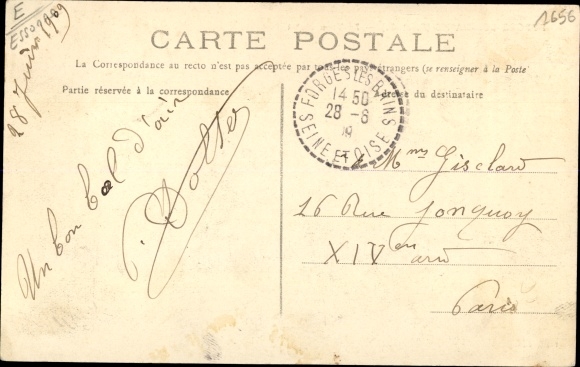 E
ESSO 91
1656
CARTE POSTALE
La Correspondance au recto n'est pas acceptée par tous les pays étrangers (se renseigner à la Poste
Partie réservée à la correspondance
Adresse du destinataire
28 Juin 1909
Un bon bol d'air
FORGES LES BAINS
14 50
28 -6
SEINE ET OISE
16 Rue Jonquoy
XIV en arr
Paris